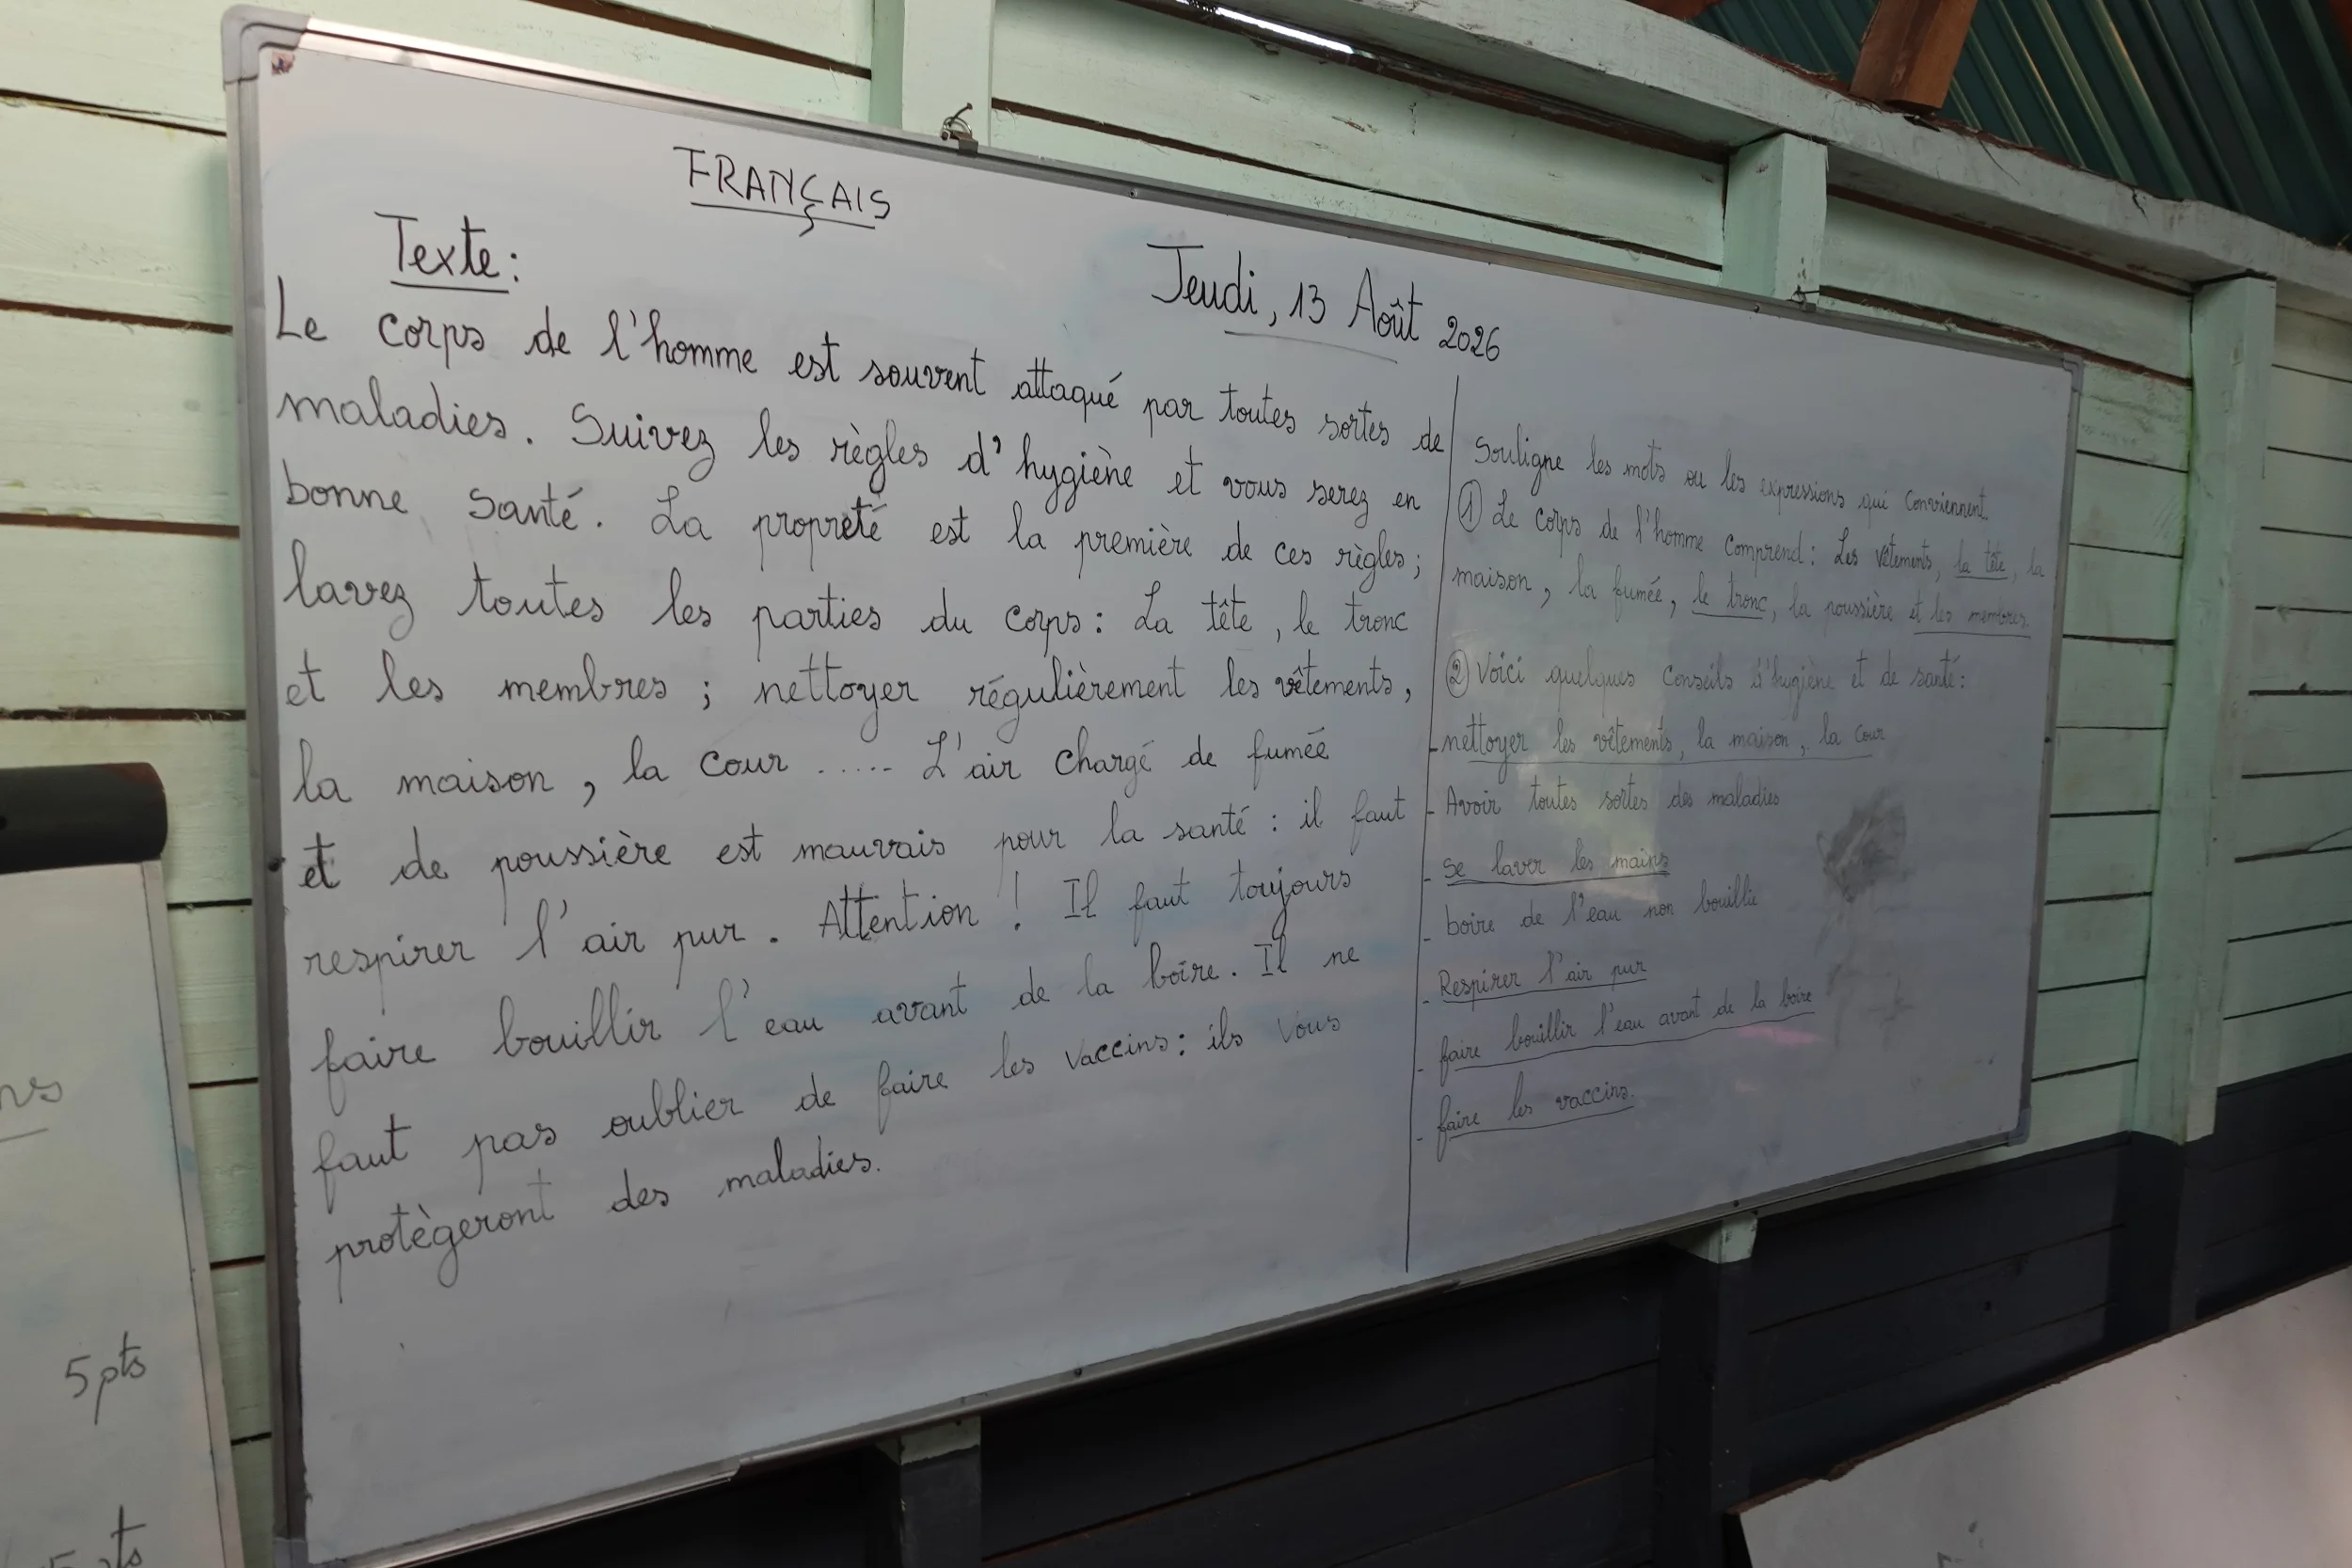 FRANÇAIS
Texte:
Jeudi, 13 Août 2026
Le corps de l'homme est souvent attaqué par toutes sortes de
maladies. Suivez les règles d'hygiène et vous serez en
bonne santé. La propreté est la première de ces règles;
lavez toutes les parties du corps: La tête, le tronc
et les membres; nettoyer régulièrement les vêtements,
la maison, la cour ..... L'air chargé de fumée
et de poussière est mauvais pour la santé: il faut
respirer l'air pur. Attention! Il faut toujours
faire bouillir l'eau avant de la boire. Il ne
faut pas oublier de faire les vaccins: ils vous
protègeront des maladies.
Souligne les mots ou les expressions qui conviennent.
① Le corps de l'homme comprend: Les vêtements, la tête, la
maison, la fumée, le tronc, la poussière et les membres.
② Voici quelques conseils d'hygiène et de santé:
- nettoyer les vêtements, la maison, la cour
- Avoir toutes sortes des maladies
- Se laver les mains
- boire de l'eau non bouillie
- Respirer l'air pur
- faire bouillir l'eau avant de la boire
- faire les vaccins.
ns
5 pts
5 pts